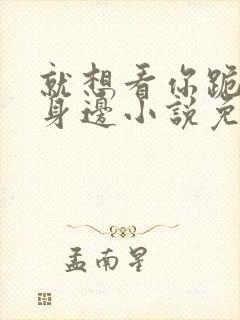 就想看你跪
身邊小說免
孟南星